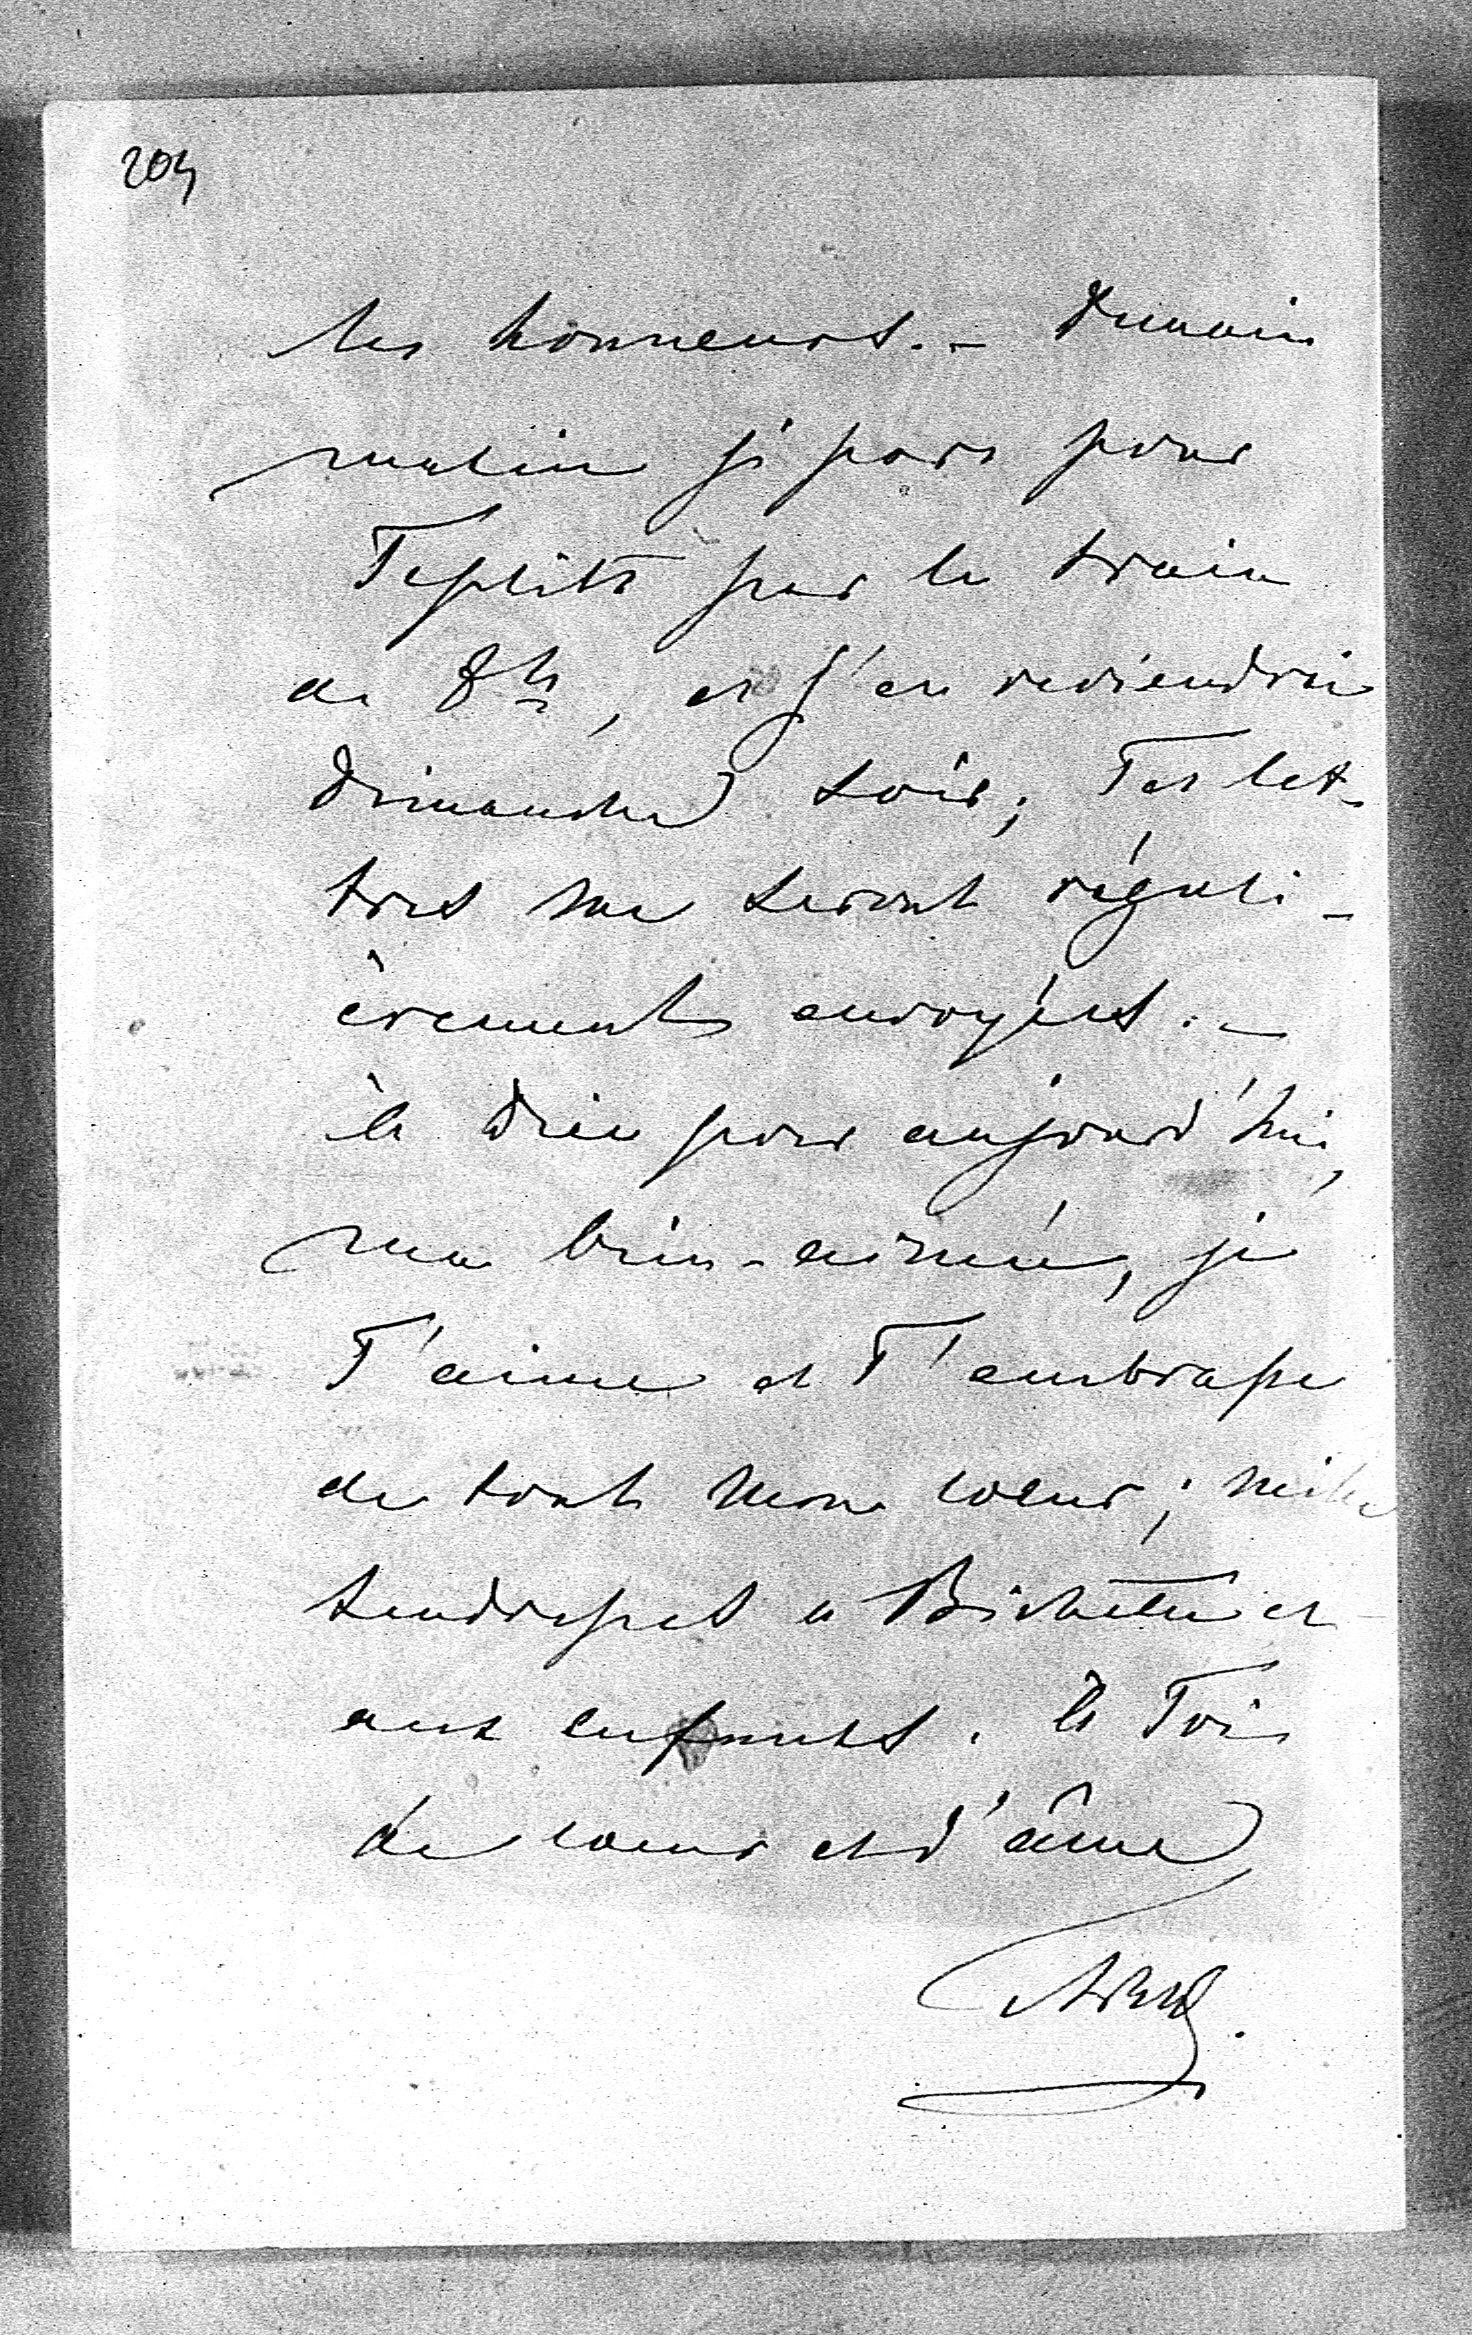 204
les honneurs. – Demain
matin je pars pour
Teplitz par le train
de 8h, et j'en reviendrai
dimanche soir; Tes let-
tres me seront réguli-
èrement envoyées. –
à Dieu pour aujourd'hui,
ma bien-aimée, je
T'aime et T'embrasse
de tout mon coeur; mille
tendresses à Bichette et
aux enfants. à Toi
de coeur et d'âme